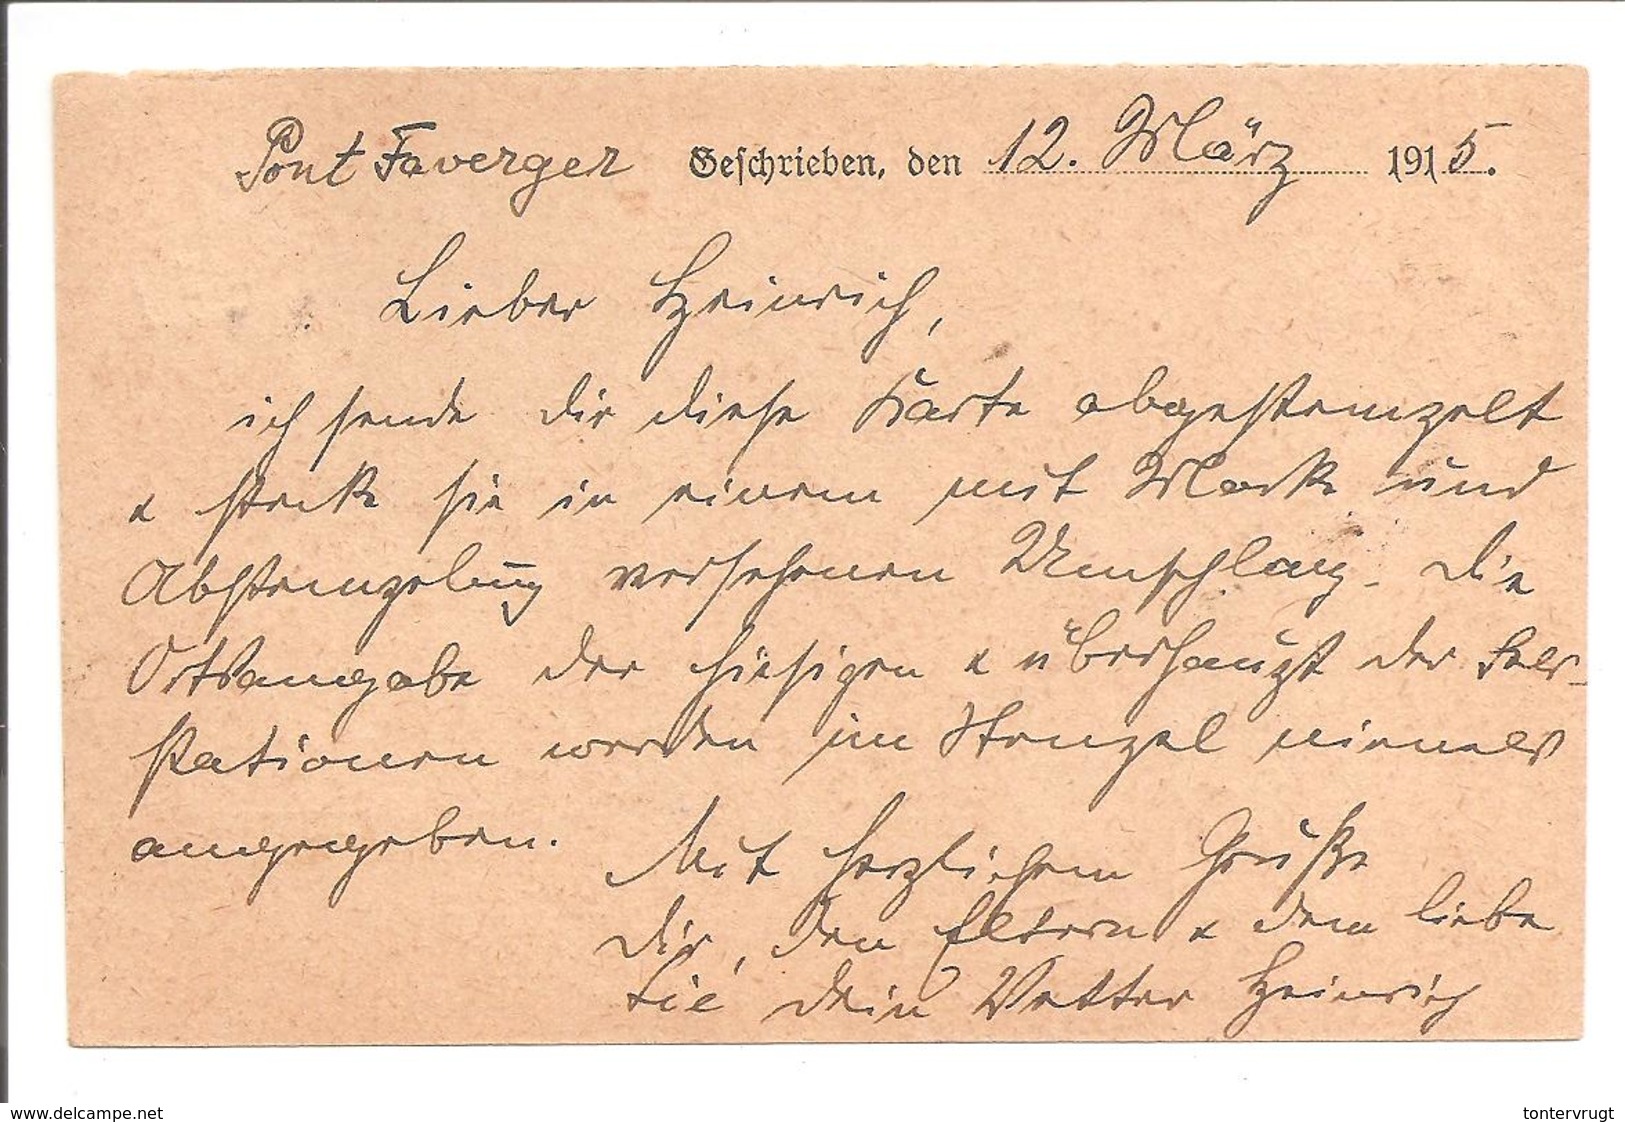 Pont Faverger Geschrieben, den 12. März 1915.
Lieber Heinrich,
ich sende dir diese Karte abgestempelt
u steck sie in einem mit Marke und
Abstempelung versehenen Umschlag. Die
Ortsangabe der hiesigen u überhaupt der Feld-
stationen werden im Stempel niemals
angegeben.
Mit herzlichem Gruße
dir, den Eltern u dem liebe
dein Vetter Heinrich
www.delcampe.net
tontervrugt